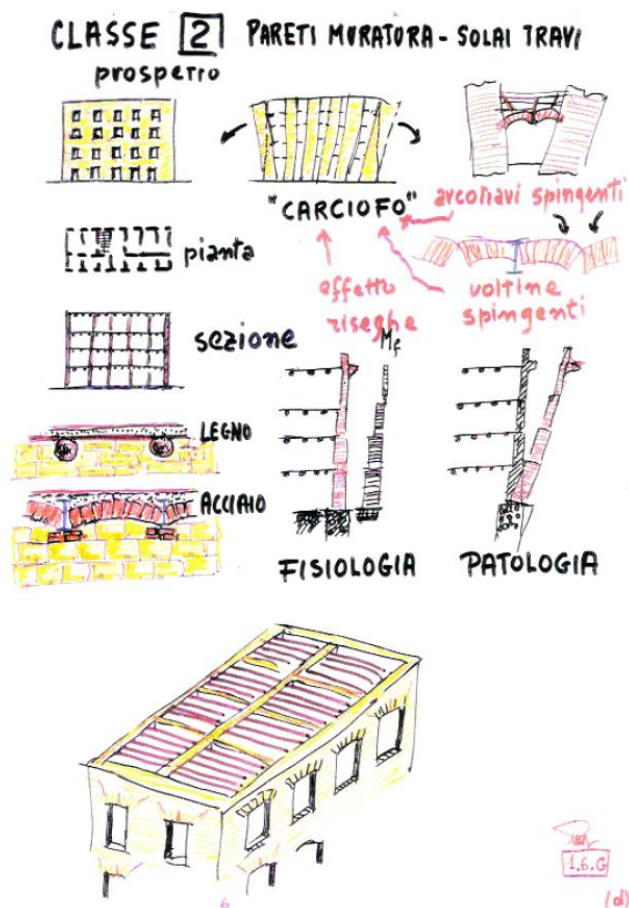 CLASSE 2 PARETI MURATURA - SOLAI TRAVI
prospetto
"CARCIOFO"
arcotravi spingenti
pianta
effetto
riseghe
voltine
spingenti
sezione
Mf
LEGNO
ACCIAIO
FISIOLOGIA
PATOLOGIA
1.6.G
6
(d)